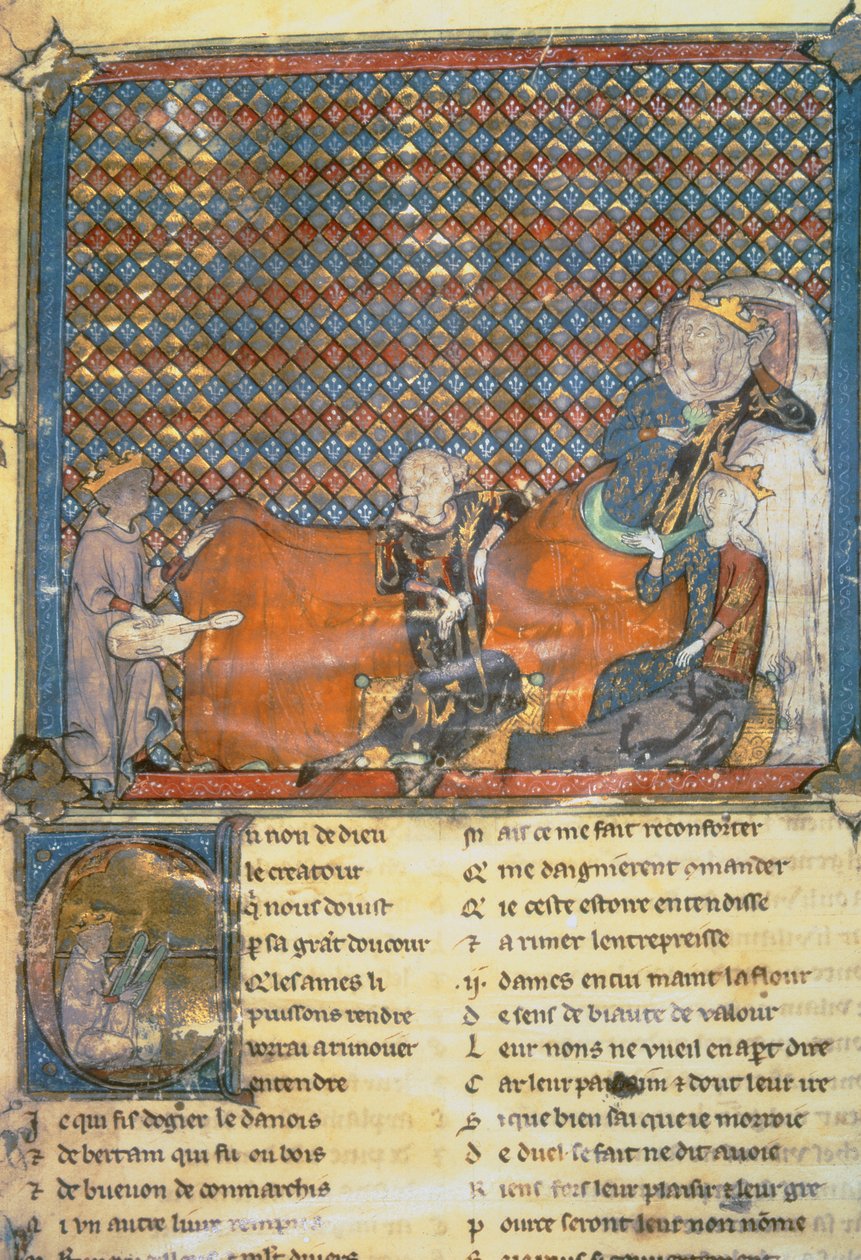 n non de dieu
le creatour
q̃ nous doinst
p sa grãt doucour
Q̃ les ames li
puissons rendre
vorrai a rimouer
entendre
J e qui fis dogier le danois
⁊ de bertain qui fu ou bois
⁊ de bueuon de conmarchis
i vn autre liure
M ais ce me fait reconforter
Q̃ me daignierent ꝯmander
Q̃ ie ceste estoire entendisse
⁊ a rimer lentrepreisse
.ij. dames en cui maint la flour
D e sens de biaute de valour
L eur nons ne vueil en apt dire
C ar leur pais aim ⁊ dout leur ire
S i que bien sai que ie morroie
d e duel se fait ne dit auoie
R iens fors leur plaisir ⁊ leur gre
P ource seront leur non nõme